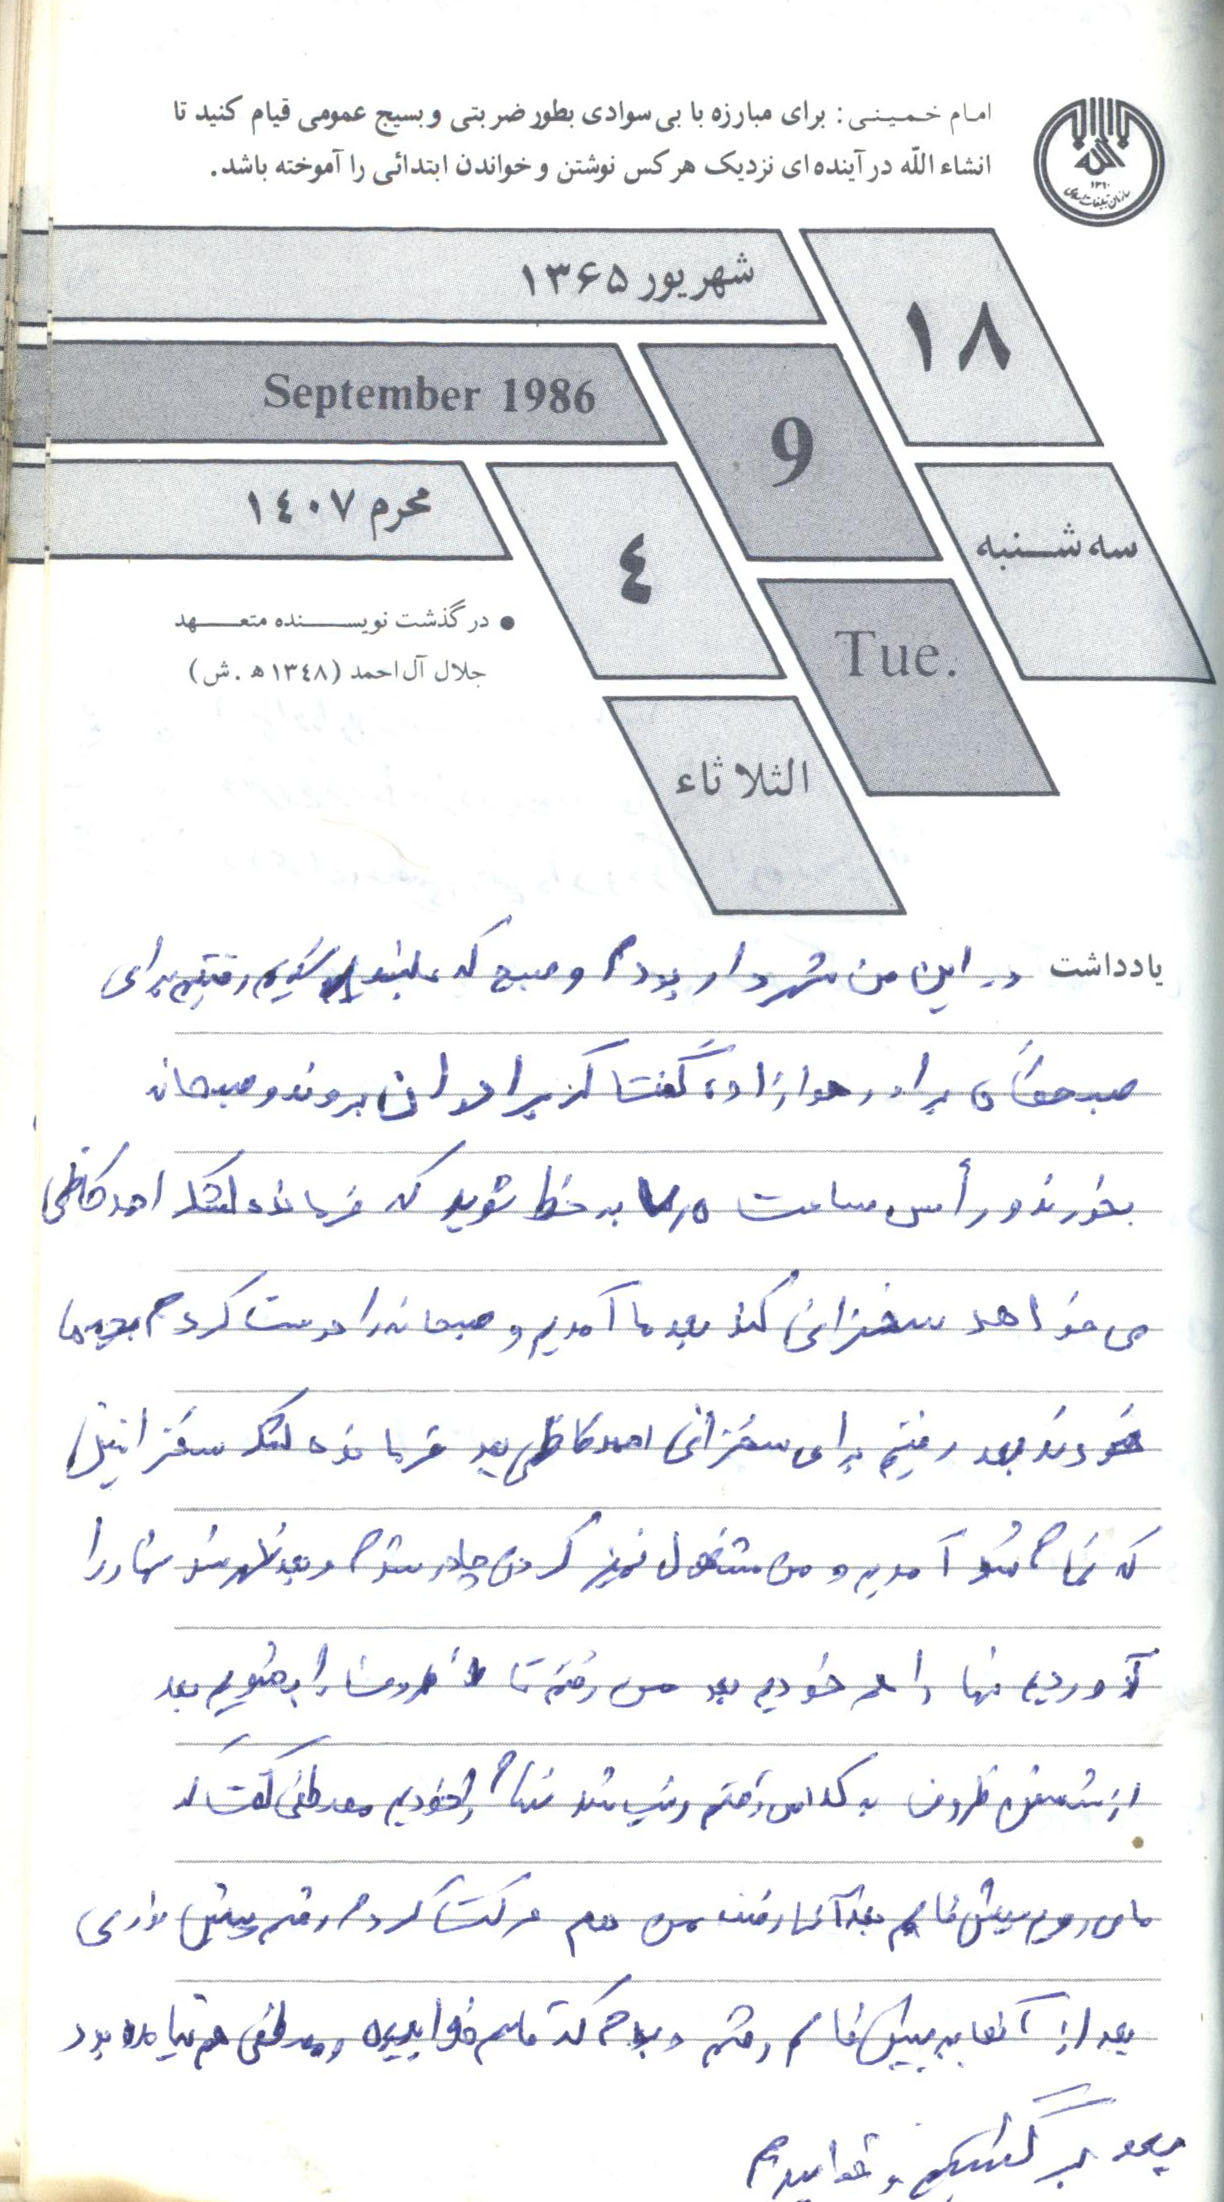 امام خمینی: برای مبارزه با بی سوادی بطور ضربتی و بسیج عمومی قیام کنید تا
انشاء اللّه در آینده ای نزدیک هر کس نوشتن و خواندن ابتدائی را آموخته باشد.
۱۳۶۰
سازمان تبلیغات اسلامی
شهریور ۱۳۶۵
۱۸
September 1986
9
محرم ۱٤۰۷
٤
سه شنبه
Tue.
الثلاثاء
● درگذشت نویسنده متعهد
جلال آل احمد (۱۳٤۸ ه . ش)
یادداشت در این من شهردار بودم و صبح که بلند شدیم رفتیم برای
صبحگاه برادر هوازاده گفتا که برادران بروند و صبحانه
بخورند و رأس ساعت ۷٫۵ به خط شوید که فرمانده لشکر احمد کاظمی
می خواهد سخنرانی کند بعد ما آمدیم و صبحانه را درست کردم بچه ها
خوردند بعد رفتیم برای سخنرانی احمد کاظمی بعد فرمانده لشکر سخنرانیش
که تمام شد آمدیم و من مشغول تمیز کردن چادر شدم و بعد ظهر شد نهار را
آوردیم نهار را هم خوردیم بعد من رفتم تا ظروف را بشویم بعد
از شستن ظروف به کلاس رفتم و شب شد شام را خوردیم مصطفی گفت که
ما می رویم پیش قاسم بعد آنها رفتند من هم حرکت کردم رفتم پیش
بعد از آنها به پیش قاسم رفتم و دیدم که قاسم خوابیده و مصطفی هم نیامده بود
بعد برگشتیم و خوابیدیم